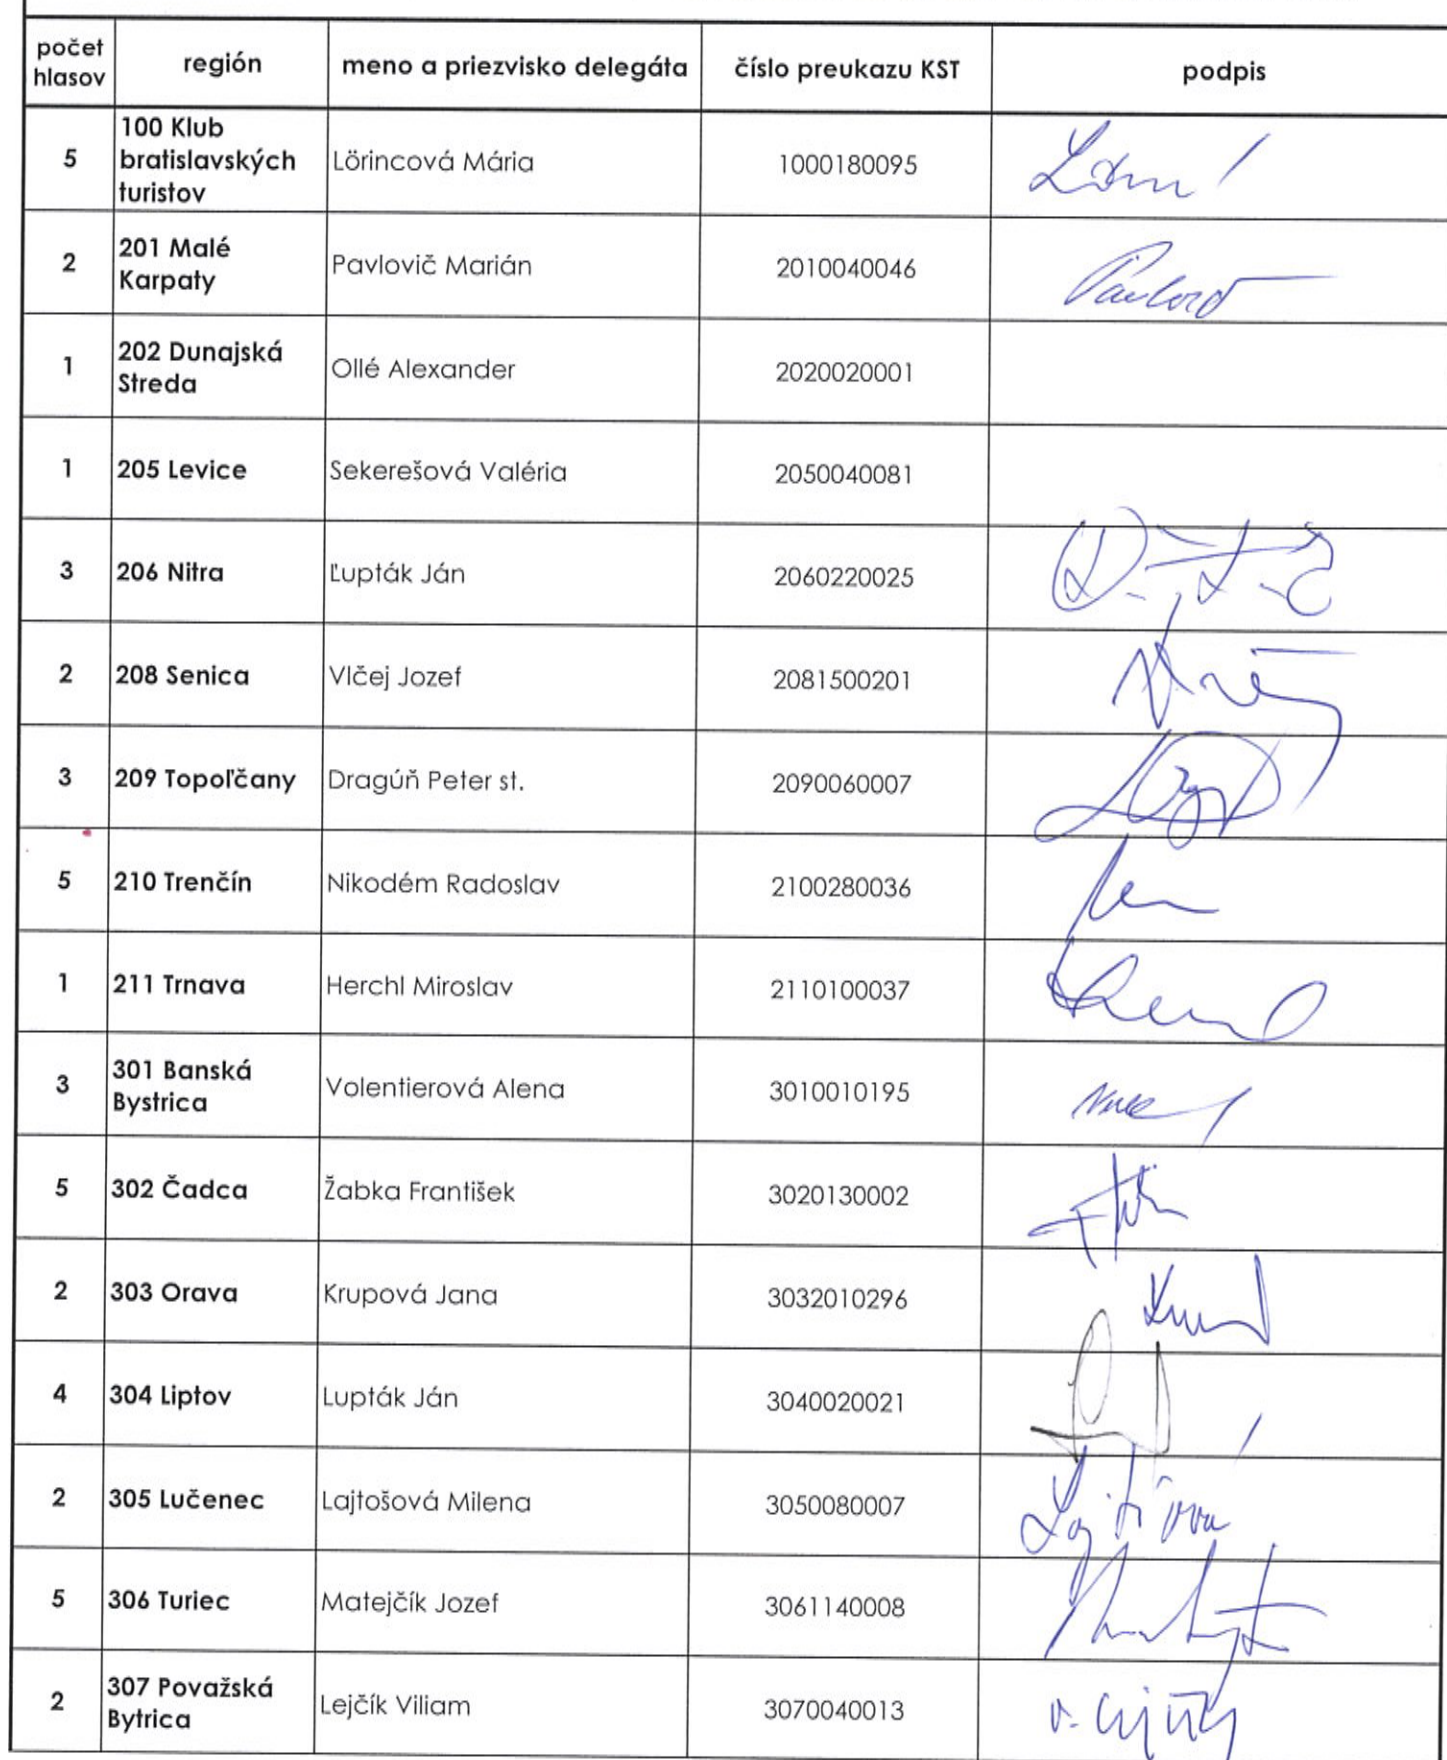 počet hlasov región meno a priezvisko delegáta číslo preukazu KST podpis
5 100 Klub bratislavských turistov Lörincová Mária 1000180095
2 201 Malé Karpaty Pavlovič Marián 2010040046
1 202 Dunajská Streda Ollé Alexander 2020020001
1 205 Levice Sekerešová Valéria 2050040081
3 206 Nitra Ľupták Ján 2060220025
2 208 Senica Vlčej Jozef 2081500201
3 209 Topoľčany Dragúň Peter st. 2090060007
5 210 Trenčín Nikodém Radoslav 2100280036
1 211 Trnava Herchl Miroslav 2110100037
3 301 Banská Bystrica Volentierová Alena 3010010195
5 302 Čadca Žabka František 3020130002
2 303 Orava Krupová Jana 3032010296
4 304 Liptov Lupták Ján 3040020021
2 305 Lučenec Lajtošová Milena 3050080007
5 306 Turiec Matejčík Jozef 3061140008
2 307 Považská Bytrica Lejčík Viliam 3070040013